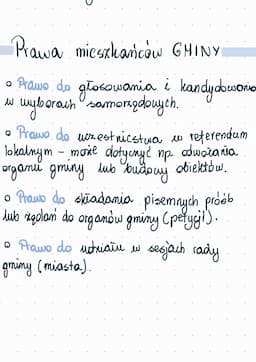 Prawa mieszkańców GMINY
• Prawo do głosowania i kandydowania
w wyborach samorządowych.
• Prawo do uczestnictwa w referendum
lokalnym - może dotyczyć np. odwołania
organu gminy lub budowy obiektów.
• Prawo do składania pisemnych próśb
lub żądań do organów gminy (petycji).
• Prawo do udziału w sesjach rady
gminy (miasta).